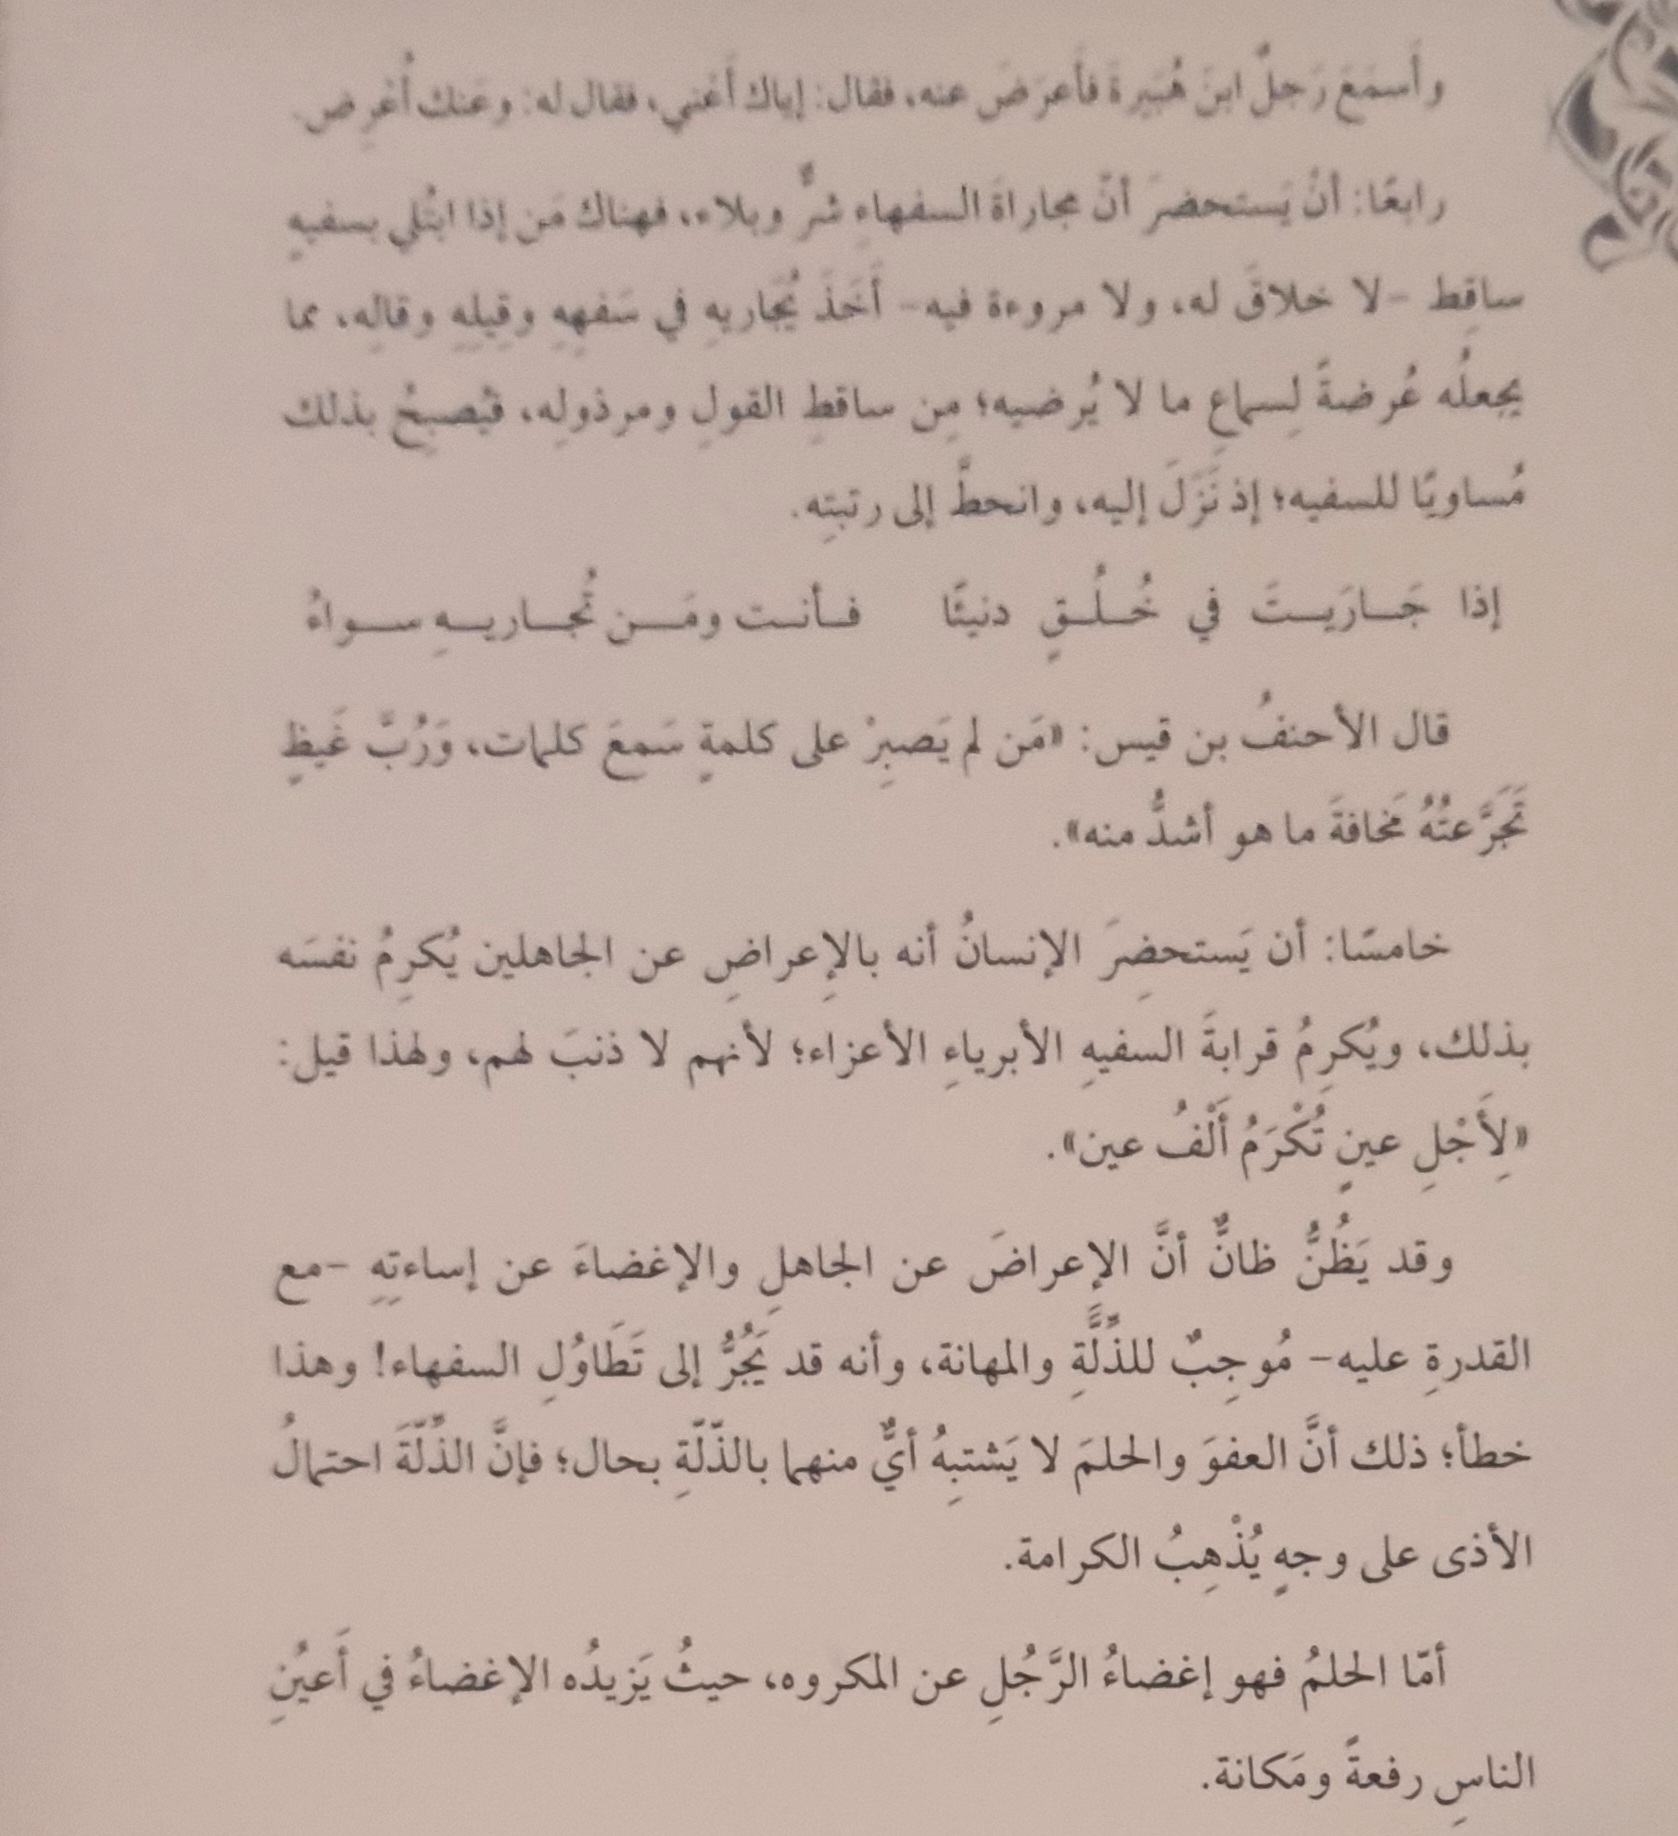 وأَسمَعَ رَجلٌ ابنَ هُبَيرةَ فأَعرَضَ عنه، فقال: إياك أَعْني، فقال له: وعَنك أُعْرِض.
رابعًا: أنْ يَستحضرَ أنَّ مجاراةَ السفهاءِ شرٌّ وبلاء، فهناك مَن إذا ابتُلي بسفيهٍ
ساقِط -لا خلاقَ له، ولا مروءة فيه- أَخَذَ يُجَاريهِ في سَفهِهِ وقِيلِهِ وقالِه، مما
يجعلُه عُرضةً لِسماعِ ما لا يُرضيه؛ مِن ساقطِ القولِ ومرذولِه، فيُصبحُ بذلك
مُساويًا للسفيه؛ إذ نَزَلَ إليه، وانحطَّ إلى رتبتِه.
إذا جَـارَيـتَ في خُـلُـقٍ دنيئًا فـأنـت ومَـن تُجـاريـهِ سـواءُ
قال الأحنفُ بن قيس: «مَن لم يَصبِرْ على كلمةٍ سَمعَ كلمات، وَرُبَّ غَيظٍ
تَجَرَّعتُهُ مَخافةَ ما هو أشدُّ منه».
خامسًا: أن يَستحضِرَ الإنسانُ أنه بالإِعراضِ عن الجاهلين يُكرِمُ نفسَه
بذلك، ويُكرِمُ قرابةَ السفيهِ الأبرياءِ الأعزاء؛ لأنهم لا ذنبَ لهم، ولهذا قيل:
«لِأَجْلِ عينٍ تُكْرَمُ أَلْفُ عين».
وقد يَظُنُّ ظانٌّ أنَّ الإعراضَ عن الجاهلِ والإغضاءَ عن إساءتِهِ -مع
القدرةِ عليه- مُوجِبٌ للذِّلَّةِ والمهانة، وأنه قد يَجُرُّ إلى تَطَاوُلِ السفهاء! وهذا
خطأ؛ ذلك أنَّ العفوَ والحلمَ لا يَشتبِهُ أيٌّ منهما بالذّلّةِ بحال؛ فإنَّ الذِّلّةَ احتمالُ
الأذى على وجهٍ يُذْهِبُ الكرامة.
أمّا الحلمُ فهو إغضاءُ الرَّجُلِ عن المكروه، حيثُ يَزيدُه الإغضاءُ في أَعيُنِ
الناسِ رفعةً ومَكانة.